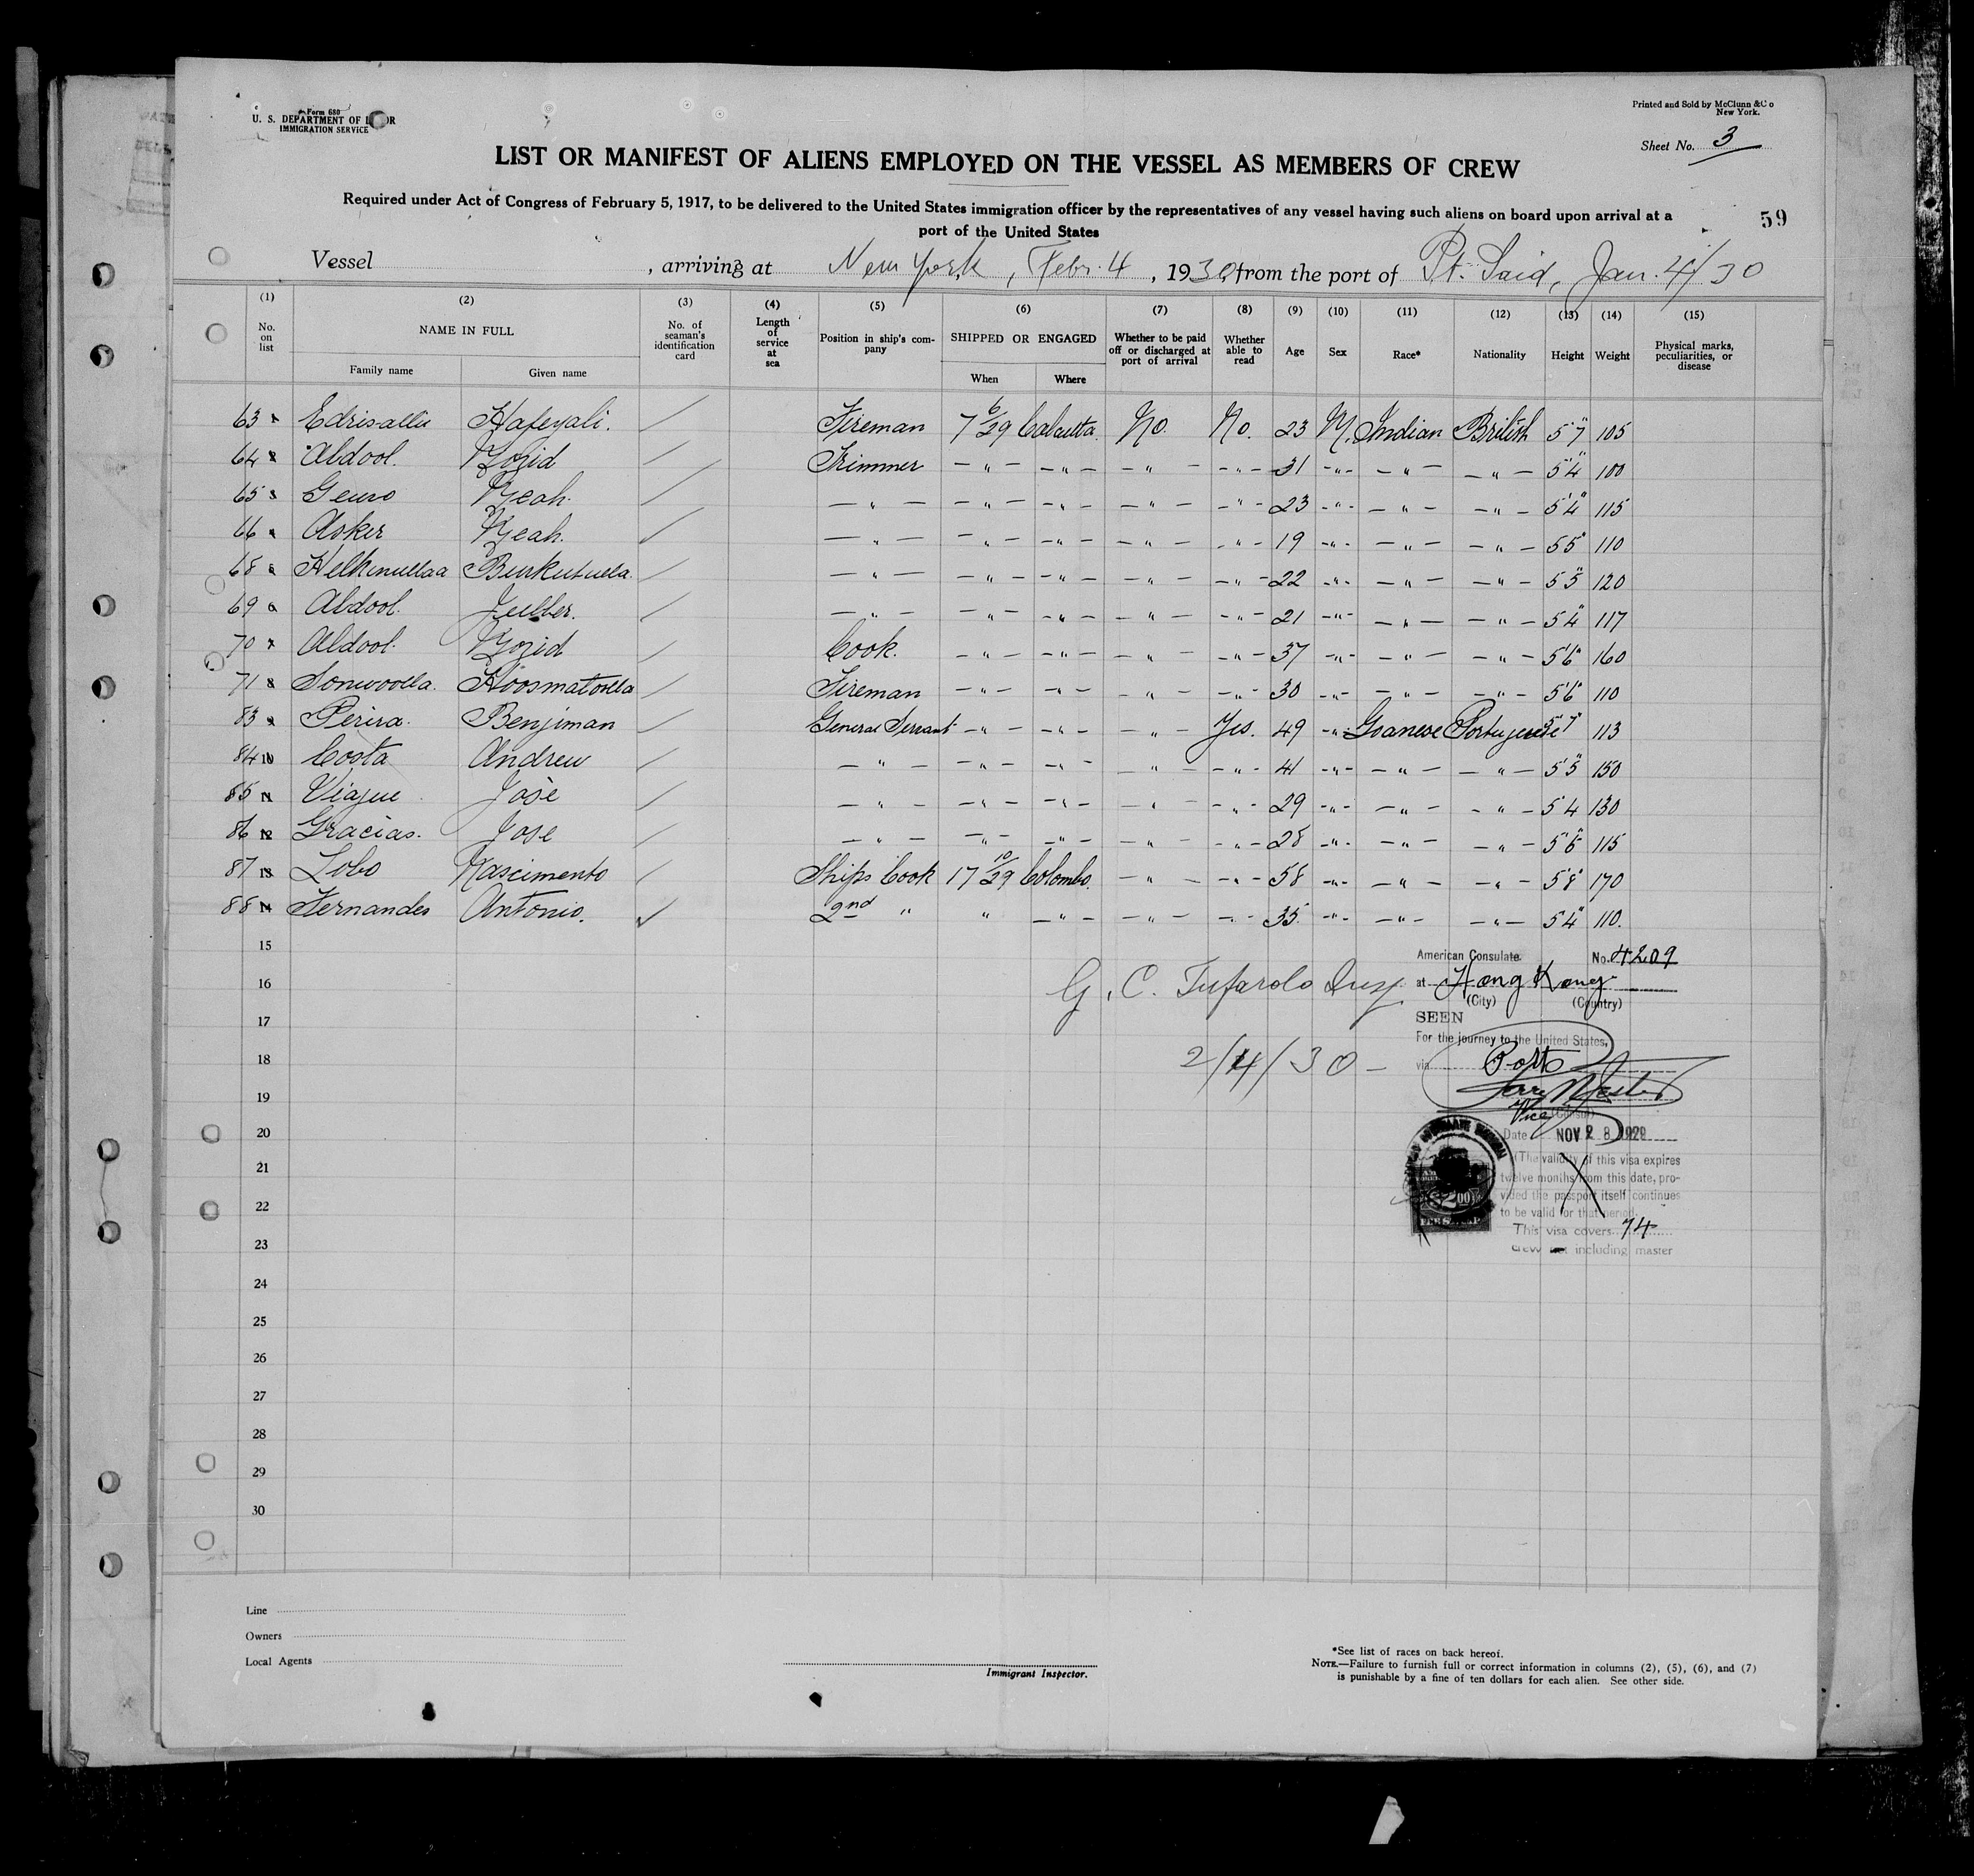 Form 680
U. S. DEPARTMENT OF L OR
IMMIGRATION SERVICE
Printed and Sold by McClunn & Co
New York.
Sheet No. 3
LIST OR MANIFEST OF ALIENS EMPLOYED ON THE VESSEL AS MEMBERS OF CREW
Required under Act of Congress of February 5, 1917, to be delivered to the United States immigration officer by the representatives of any vessel having such aliens on board upon arrival at a
port of the United States
59
Vessel , arriving at New York, Febr. 4, 1930, from the port of Pt. Said, Jan. 4/30
(1) (2) (3) (4) (5) (6) (7) (8) (9) (10) (11) (12) (13) (14) (15)
No. on list NAME IN FULL No. of seaman's identification card Length of service at sea Position in ship's company SHIPPED OR ENGAGED Whether to be paid off or discharged at port of arrival Whether able to read Age Sex Race* Nationality Height Weight Physical marks, peculiarities, or disease
Family name Given name When Where
63 Edrisallie Hafeyali. Fireman 7 6/29 Calcutta. No. No. 23 M. Indian British 5'7" 105
64 Abdool. Gozid Trimmer — " — — " — — " — — " — 31 — " — — " — — " — 5'4" 100
65 Geuro Meah. — " — — " — — " — — " — — " — 23 — " — — " — — " — 5'4" 115
66 Asker Meah. — " — — " — — " — — " — — " — 19 — " — — " — — " — 5'5" 110
68 Helkinullaa Burkutuela. — " — — " — — " — — " — — " — 22 — " — — " — — " — 5'5" 120
69 Abdool. Jubber. — " — — " — — " — — " — — " — 21 — " — — " — — " — 5'4" 117
70 Abdool. Gozid Cook. — " — — " — — " — — " — 37 — " — — " — — " — 5'6" 160
71 Sonwoolla. Koosmatoolla Fireman — " — — " — — " — — " — 30 — " — — " — — " — 5'6" 110
83 Perira. Benjiman General Servant — " — — " — — " — Yes. 49 — " — Goanese Portugese 5'7" 113
84 Costa Andrew — " — — " — — " — — " — — " — 41 — " — — " — — " — 5'5" 150
85 Viague José — " — — " — — " — — " — — " — 29 — " — — " — — " — 5'4 130
86 Gracias. Jose — " — — " — — " — — " — — " — 28 — " — — " — — " — 5'6" 115
87 Lobo Nascimento Ships Cook 17 10/29 Colombo. — " — — " — 58 — " — — " — — " — 5'8" 170
88 Fernandes Antonio. 2nd " " — " — — " — — " — 35. — " — — " — — " — 5'4" 110.
15
16
17
18
19
20
21
22
23
24
25
26
27
28
29
30
G. C. Tufarolo Insp.
2/4/30 —
American Consulate No. 4209
at Hong Kong
(City) (Country)
SEEN
For the journey to the United States,
via Ports
Vice (Consul)
Date NOV 28 1929
(The validity of this visa expires
twelve months from this date, pro-
vided the passport itself continues
to be valid for that period.
This visa covers 74
crew including master
$2.00
FEE STAMP
Line
Owners
Local Agents
Immigrant Inspector.
*See list of races on back hereof.
NOTE.—Failure to furnish full or correct information in columns (2), (5), (6), and (7)
is punishable by a fine of ten dollars for each alien. See other side.